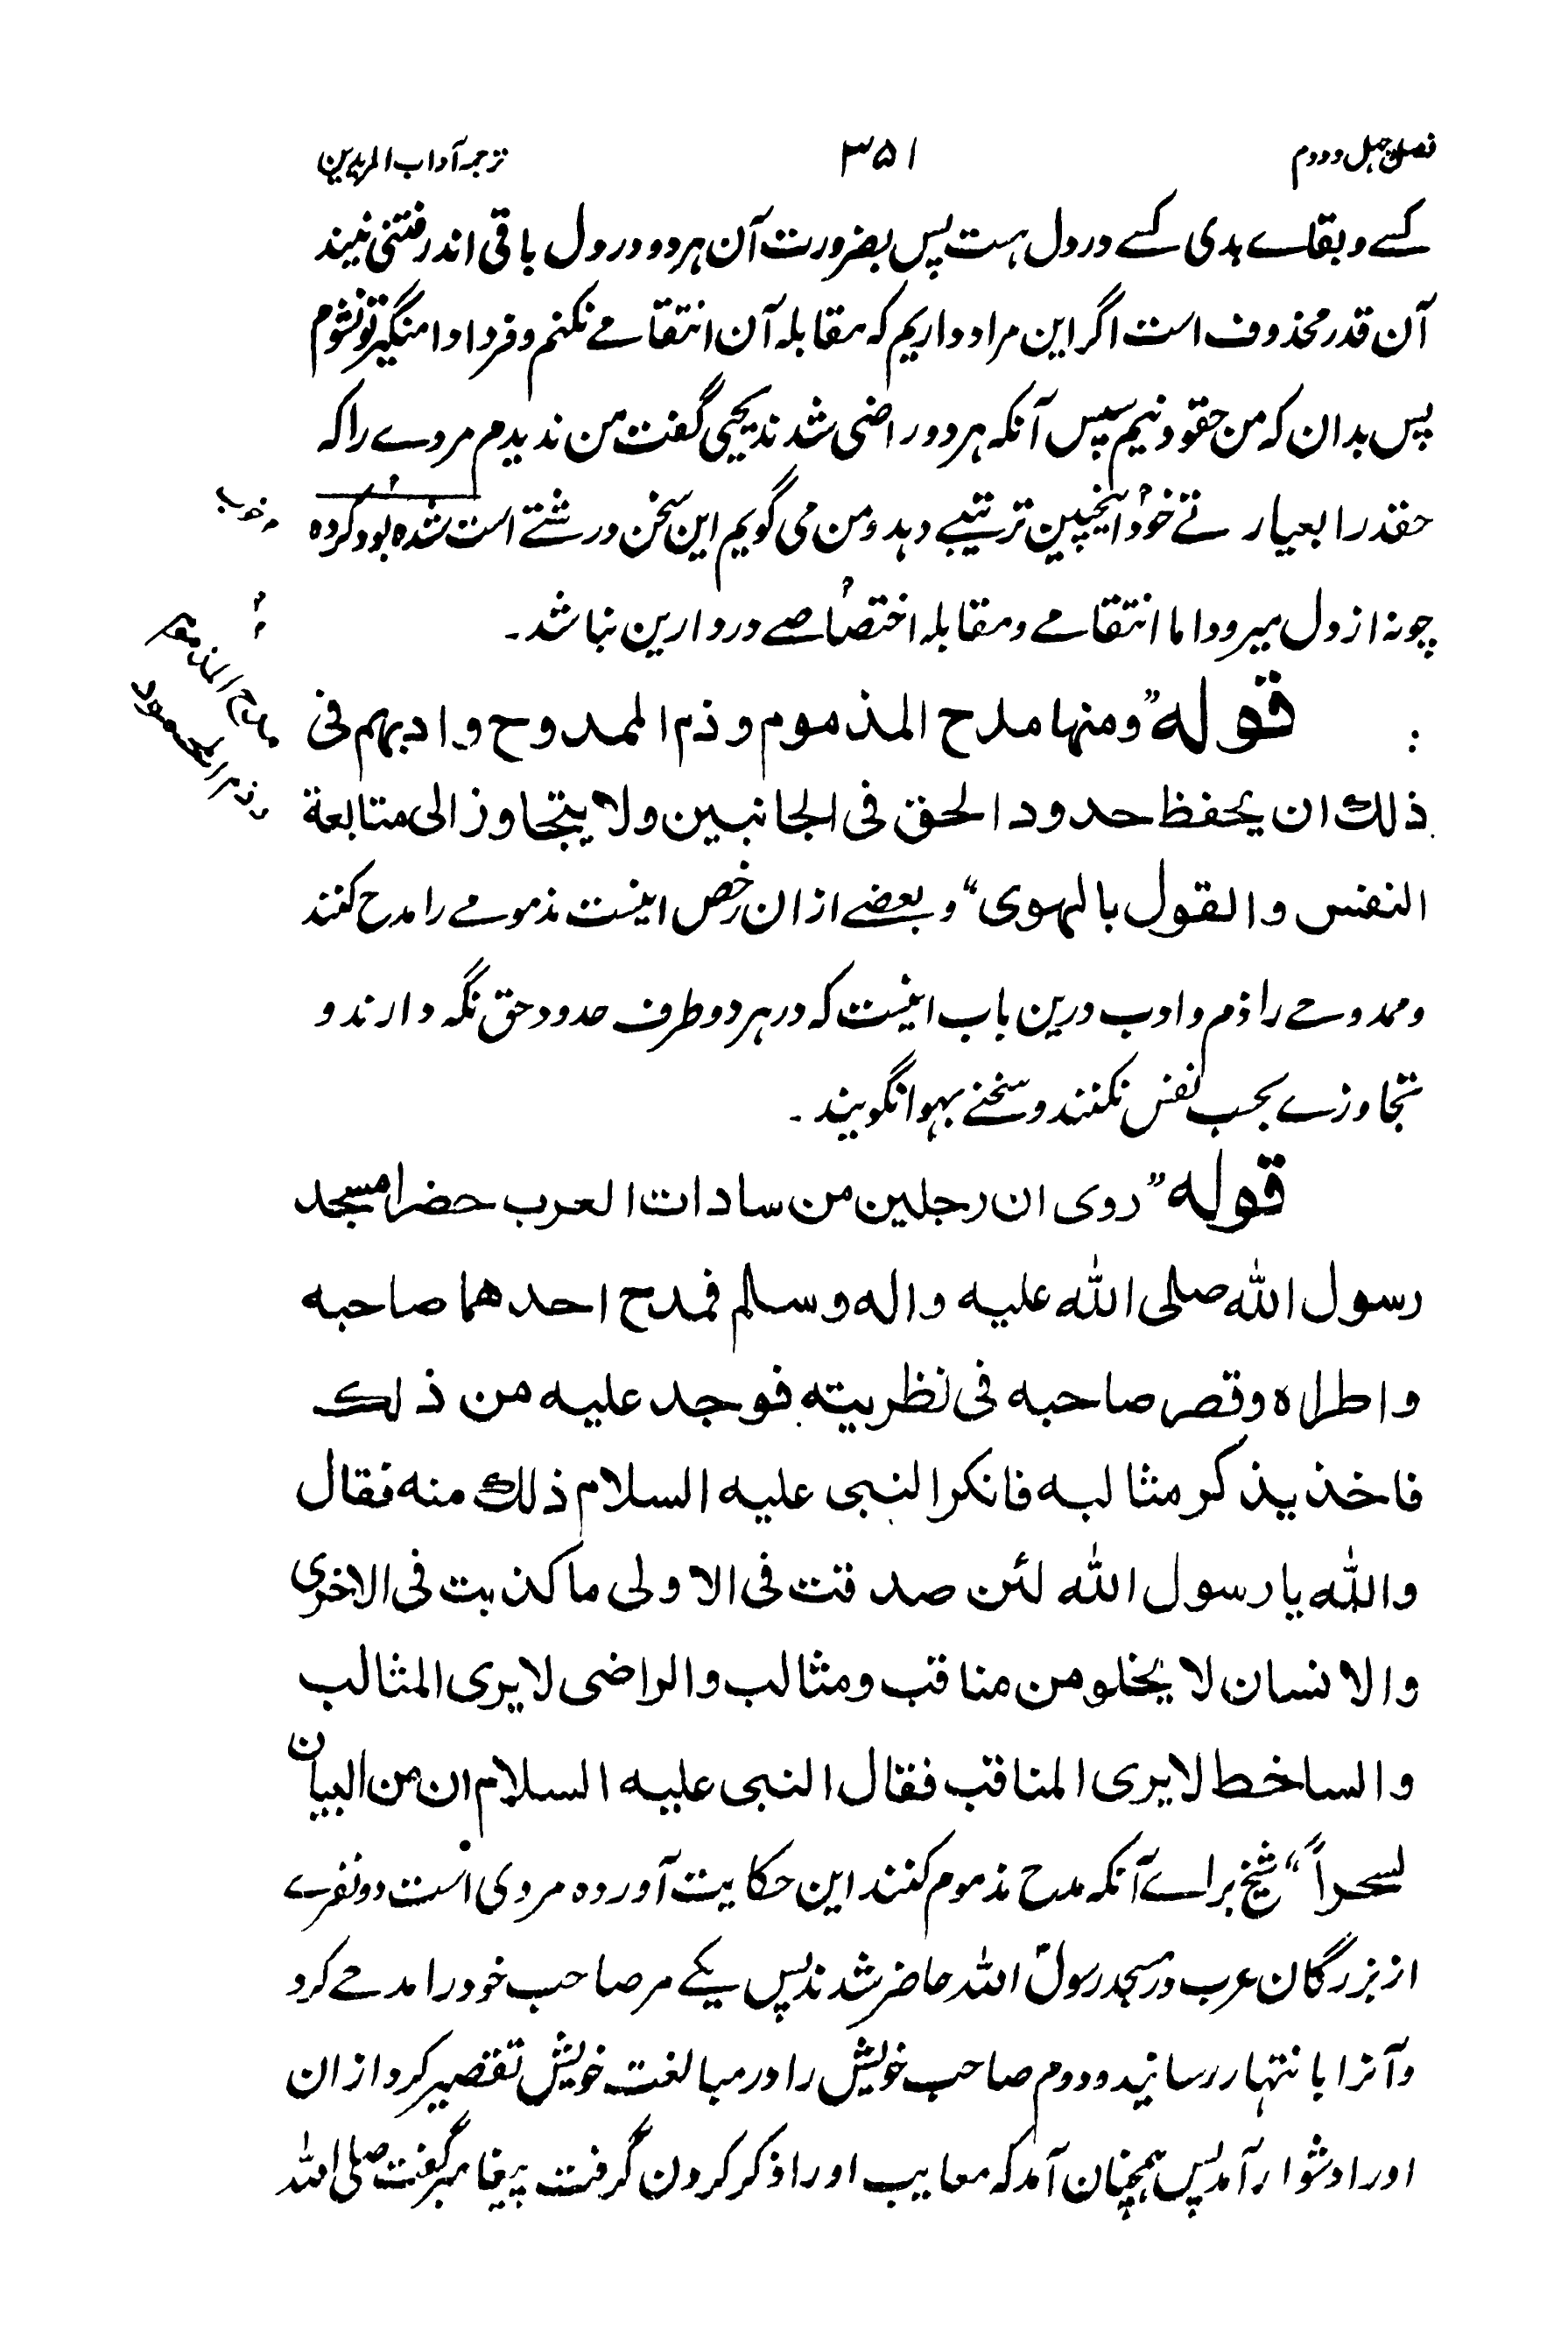 فصل چہل و دوم ۳۵۱ ترجمہ آداب المریدین
کسے و بقاے بدی کسے در دل ہست پس بضرورت آن ہر دو در دل باقی اند رفتنی نیند
آن قدر محذوف است اگر این مراد داریم کہ مقابلہ آن انتقامے نکنم و فردا دامنگیر تو نشوم
پس بدان کہ من حقود نیم سپس آنکہ ہر دو راضی شدند یحیی گفت من ندیدم مردے را کہ
حقد را بعیار تے خود اینچنین ترتیبے دہد و من می گویم این سخن درشتے است شدہ بود کردہ
و خوب
چونہ از دل میرود اما انتقامے و مقابلہ اختصاصے در دارین نباشد۔
قوله ”ومنها مدح المذموم وذم الممدوح وادبهم فی
مدح المذموم
وذم المحمود
ذلك ان یحفظ حدود الحق فی الجانبین ولا یتجاوز الی متابعة
النفس والقول بالهوی“ و بعضے ازان رخص اینست مذمومے را مدح کنند
و ممدوحے را ذم و ادب درین باب اینست کہ در ہر دو طرف حدود حق نگہ دارند و
تجاوزے بحسب نفس نکنند و سخنے بہوا نگویند۔
قوله ”روی ان رجلین من سادات العرب حضرا مسجد
رسول الله صلی الله علیه واله وسلم فمدح احدهما صاحبه
واطراه وقصر صاحبه فی نظریته فوجد علیه من ذلك
فاخذ یذکر مثالبه فانکر النبی علیه السلام ذلك منه فقال
والله یا رسول الله لئن صدقت فی الاولی ما کذبت فی الاخری
والانسان لا یخلو من مناقب ومثالب والراضی لا یری المثالب
والساخط لا یری المناقب فقال النبی علیه السلام ان من البیان
لسحراً“ شیخ براے آنکہ مدح مذموم کنند این حکایت آوردہ مروی است دو نفرے
از بزرگان عرب در مسجد رسول اللہ حاضر شدند پس یکے مر صاحب خود را مدحے کرد
و آنرا بانتہا رسانید و دوم صاحب خویش را در مبالغت خویش تقصیر کرد ازان
او را دشوار آمد پس ہمچنان آمد کہ معایب او را ذکر کردن گرفت پیغامبر گفت صلی اللہ